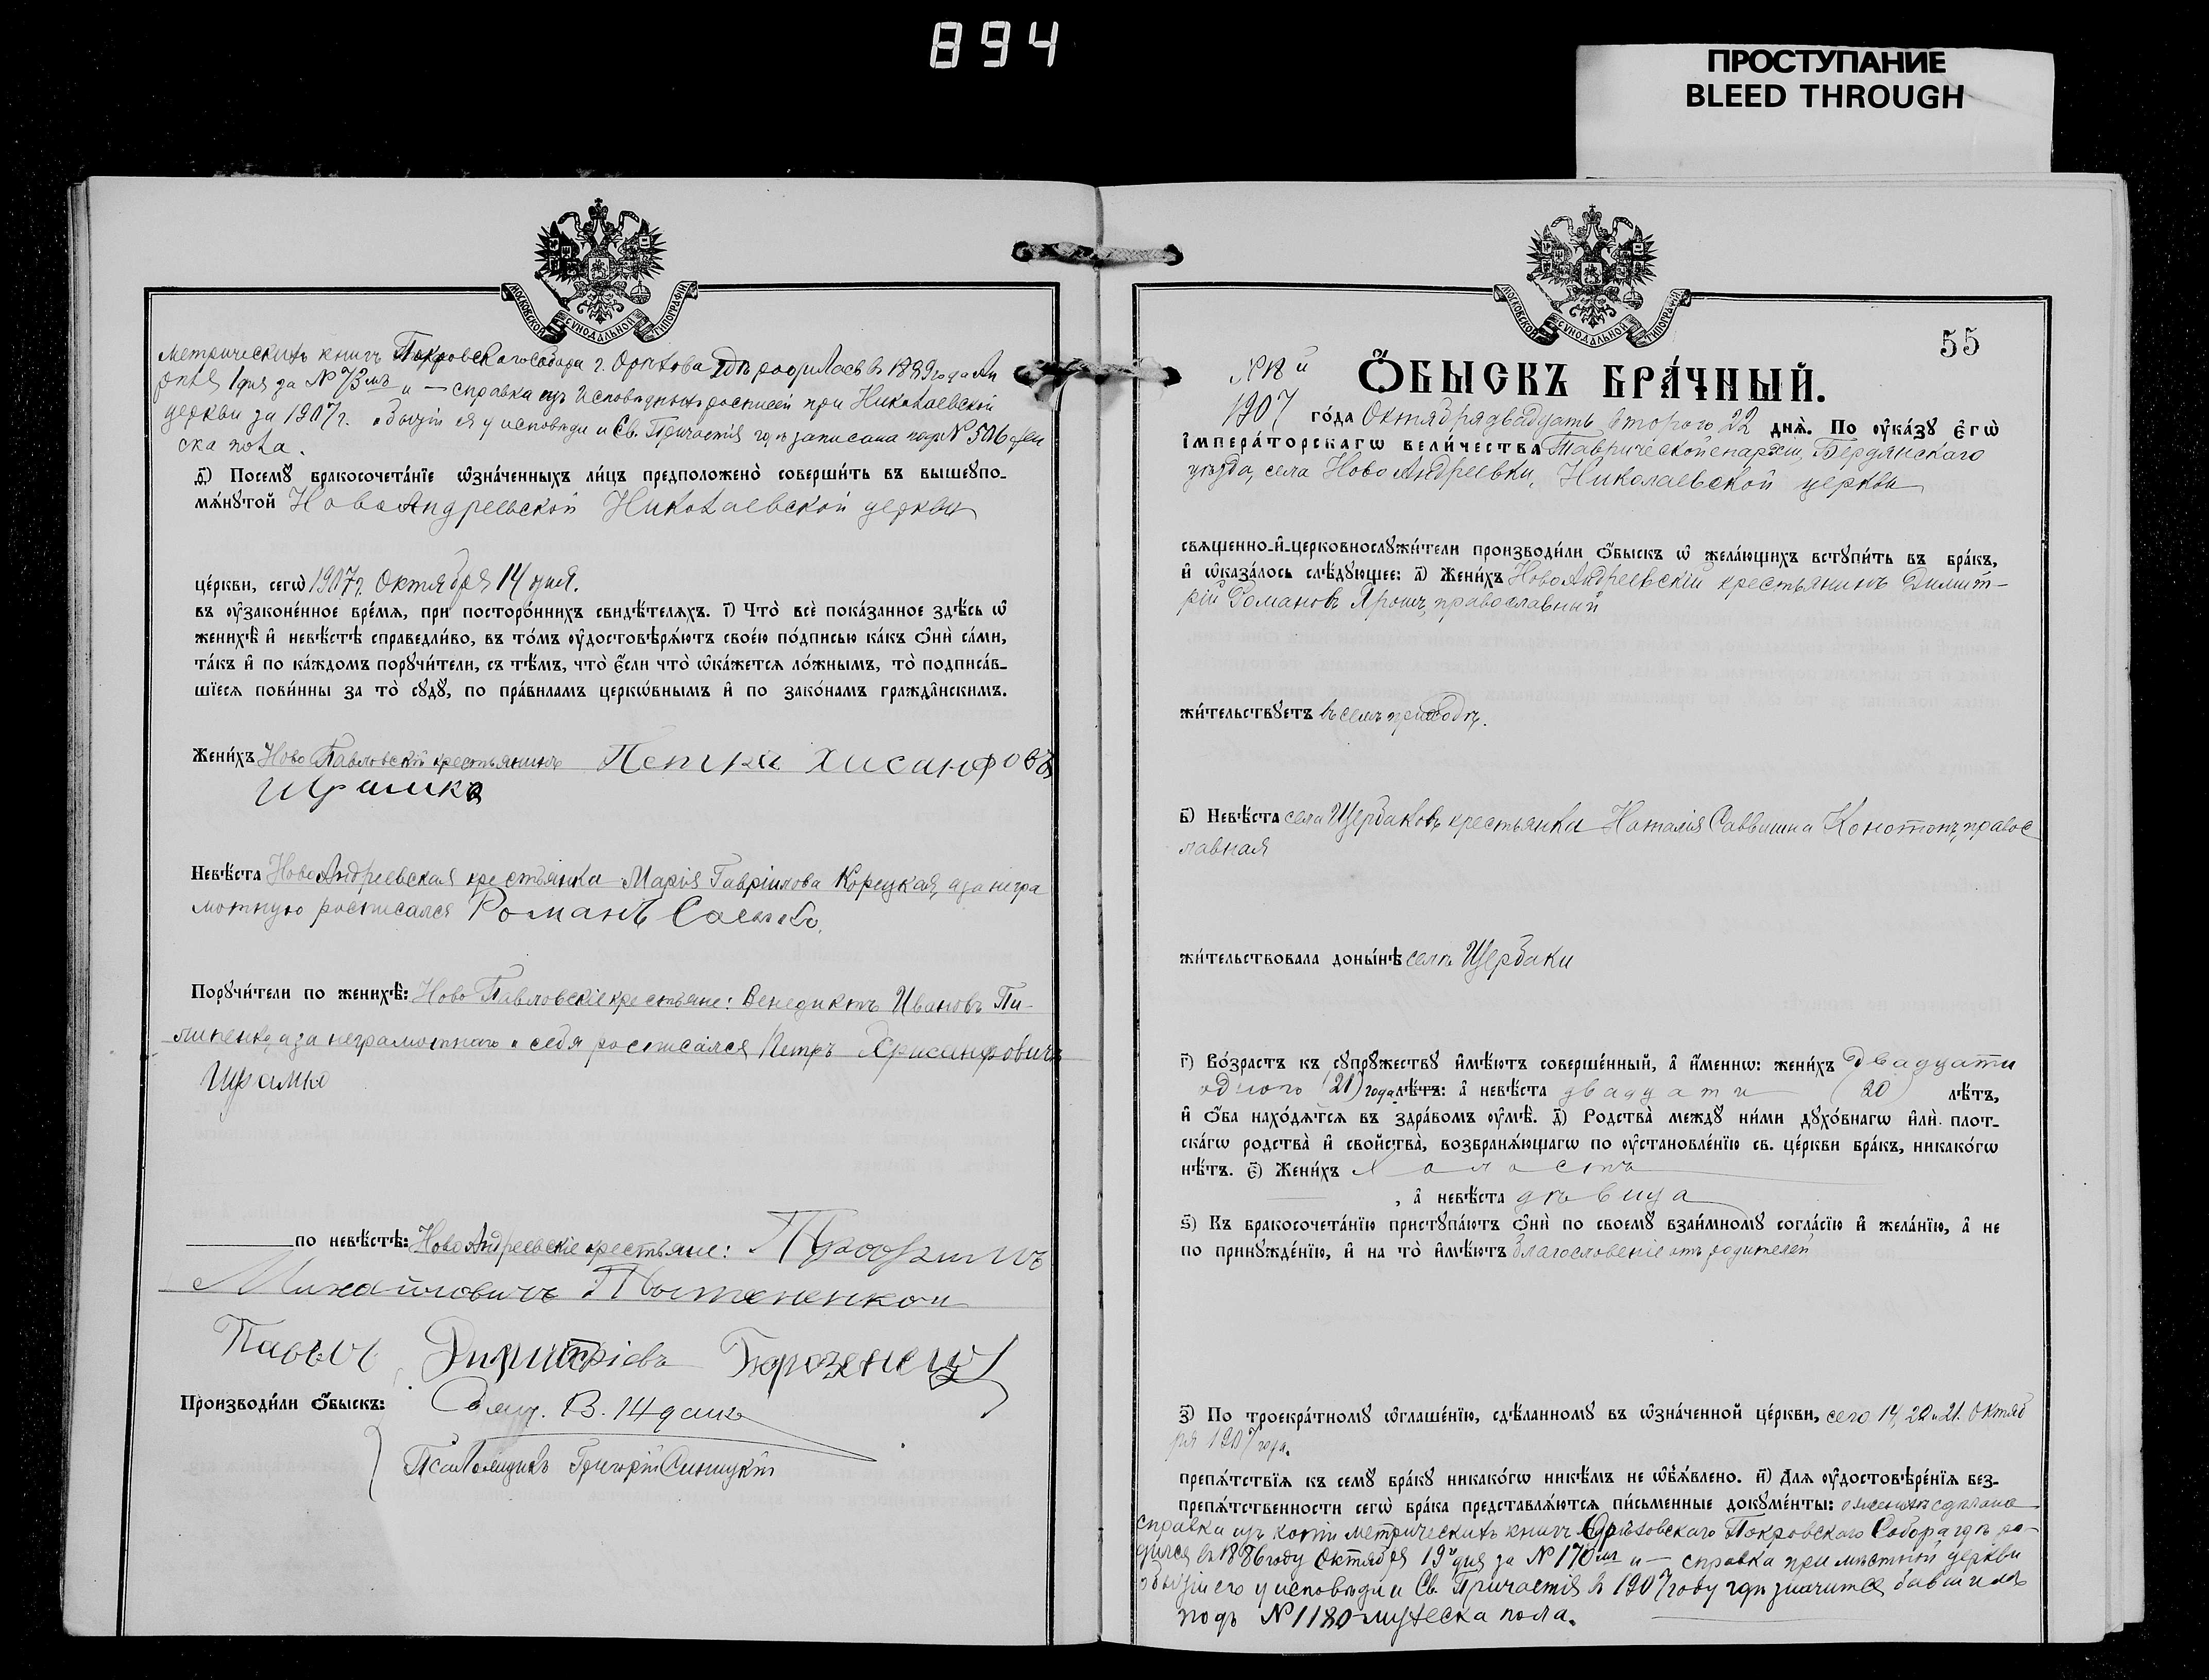 894
ПРОСТУПАНИЕ
BLEED THROUGH
МОСКОВСКОЙ СѴНОДАЛЬНОЙ ТИПОГРАФІИ
метрическихъ книгъ Покровскаго Собора г. Орѣхова гдѣ родилась въ 1889 года
1 дня за № 73мъ и — справка изъ Исповѣдныхъ росписей при Николаевской
церкви за 1907 г. о бытіи ея у исповѣди и Св. Причастія гдѣ записана подъ № 506 жен
ска пола.
д҃) Посемꙋ бракосочета́нїе ѡзна́ченныхъ ли́цъ предположено̀ соверши́ть въ вышеꙋпо-
мѧ́нꙋтой НовоАндреевской Николаевской церкви
це́ркви, сегѡ̀ 1907 г. Октября 14 дня.
въ ᲂу҆зако́ненное вре́мѧ, при посторо́ннихъ свидѣ́телѧхъ. і҃) Что̀ всѐ пока́занное здѣ́сь ѡ҆
женихѣ̀ и҆ невѣ́стѣ справедли́во, въ то́мъ ᲂу҆достовѣрѧ́ютъ свое́ю по́дписью ка́къ ѻ҆нѝ са́ми,
та́къ и҆ по ка́ждомъ порꙋчи́тели, съ тѣ́мъ, что̀ є҆́сли что̀ ѡ҆ка́жетсѧ ло́жнымъ, то̀ подписа́в-
шїесѧ пови́нны за то̀ сꙋдꙋ̀, по пра́виламъ церко́внымъ и҆ по зако́намъ гражда́нскимъ.
Жени́хъ Ново Павловскій крестьянинъ Петръ Хисанфовъ
Шрамко
Невѣ́ста НовоАндреевская крестьянка Марія Гавріилова Корецкая, а за негра
мотную росписался Романъ
Порꙋчи́тели по женихѣ̀: Ново Павловскіе крестьяне: Венедиктъ Ивановъ Пи-
липенко, а за неграмотнаго и себя росписался Петръ Хрисанфовичъ
Шрамко
по невѣ́стѣ: НовоАндреевскіе крестьяне: Трофимъ
Михайловичъ
Павелъ Димитріевъ
Производи́ли ѻ҆́быскъ: Свящ. В.
Псаломщикъ Григорій Синицкій
55
№ 18й
Ѻ҆́БЫСКЪ БРА́ЧНЫЙ.
1907 го́да Октября двадцать второго 22 днѧ̀. По ᲂу҆ка́зꙋ є҆гѡ̀
і҆мпера́торскагѡ вели́чества Таврической епархіи, Бердянскаго
уѣзда, села НовоАндреевки, Николаевской церкви
свѧще́нно-и҆-церковнослꙋжи́тели производи́ли ѻ҆́быскъ ѡ҆ жела́ющихъ встꙋпи́ть въ бра́къ,
и҆ ѡ҆каза́лось слѣ́дꙋющее: а҃) Жени́хъ НовоАндреевскій крестьянинъ Димит-
рій Романовъ Ярошъ, православный
жи́тельствꙋетъ въ семъ приходѣ.
в҃) Невѣ́ста села Щербаковъ крестьянка Наталія Саввишна Конотопъ, правос
лавная
жи́тельствовала доны́нѣ селѣ Щербаки
г҃) Во́зрастъ къ сꙋпрꙋ́жествꙋ и҆мѣ́ютъ соверше́нный, а҆ и҆́меннѡ: жени́хъ двадцати
одного (21) года лѣ́тъ: а҆ невѣ́ста двадцати (20) лѣ́тъ,
и҆ ѻ҆́ба нахо́дѧтсѧ въ здра́вомъ ᲂу҆мѣ̀. д҃) Родства̀ междꙋ ни́ми дꙋхо́внагѡ и҆лѝ плот-
ска́гѡ родства̀ и҆ сво́йства, возбранѧ́ющагѡ по ᲂу҆становле́нїю св. це́ркви бра́къ, никако́гѡ
нѣ́тъ. є҃) Жени́хъ холостъ
, а҆ невѣ́ста дѣвица
ѕ҃) Къ бракосочета́нїю пристꙋпа́ютъ ѻ҆нѝ по своемꙋ̀ взаи́мномꙋ согла́сїю и҆ жела́нїю, а҆ не
по принꙋжде́нїю, и҆ на то̀ и҆мѣ́ютъ благословеніе отъ родителей
з҃) По троекра́тномꙋ ѡ҆глаше́нїю, сдѣ́ланномꙋ въ ѡ҆зна́ченной це́ркви, сего 14, 20 и 21 Октяб
ря 1907 года.
препѧ́тствїѧ къ семꙋ̀ бра́кꙋ никако́гѡ никѣ́мъ не ѡ҆б̾ѧ́влено. и҃) Длѧ ᲂу҆достовѣре́нїѧ без-
препѧ́тственности сегѡ̀ бра́ка представлѧ́ютсѧ пи́сьменные докꙋме́нты: о женихѣ сдѣлана
справка изъ копіи метрическихъ книгъ Орѣховскаго Покровскаго Собора гдѣ ро-
дился въ 1886 году Октября 19го дня за № 170мъ и — справка при мѣстной церкви
о бытіи его у исповѣди и Св. Причастія въ 1907 году гдѣ значится бывшимъ
подъ № 1180 мужеска пола.